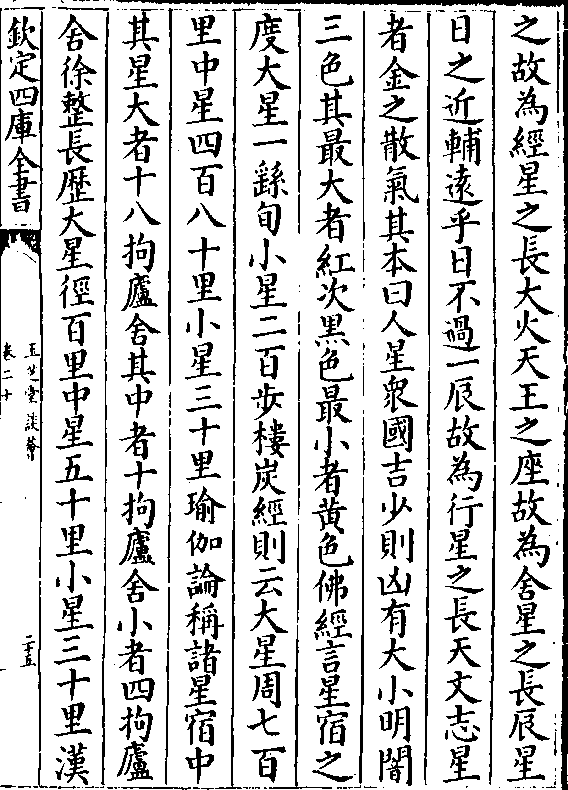 之故為經星之長大火天王之座故為舍星之長辰星
日之近輔遠乎日不過一辰故為行星之長天文志星
者金之散氣其本曰人星衆國吉少則凶有大小明闇
三色其最大者紅次黒色最小者黄色佛經言星宿之
度大星一繇旬小星二百步樓炭經則云大星周七百
里中星四百八十里小星三十里瑜伽論稱諸星宿中
其星大者十八拘廬舍其中者十拘廬舍小者四拘廬
舍徐整長歴大星徑百里中星五十里小星三十里漢
欽定四庫全書
玉芝堂談薈
卷二十
二十五